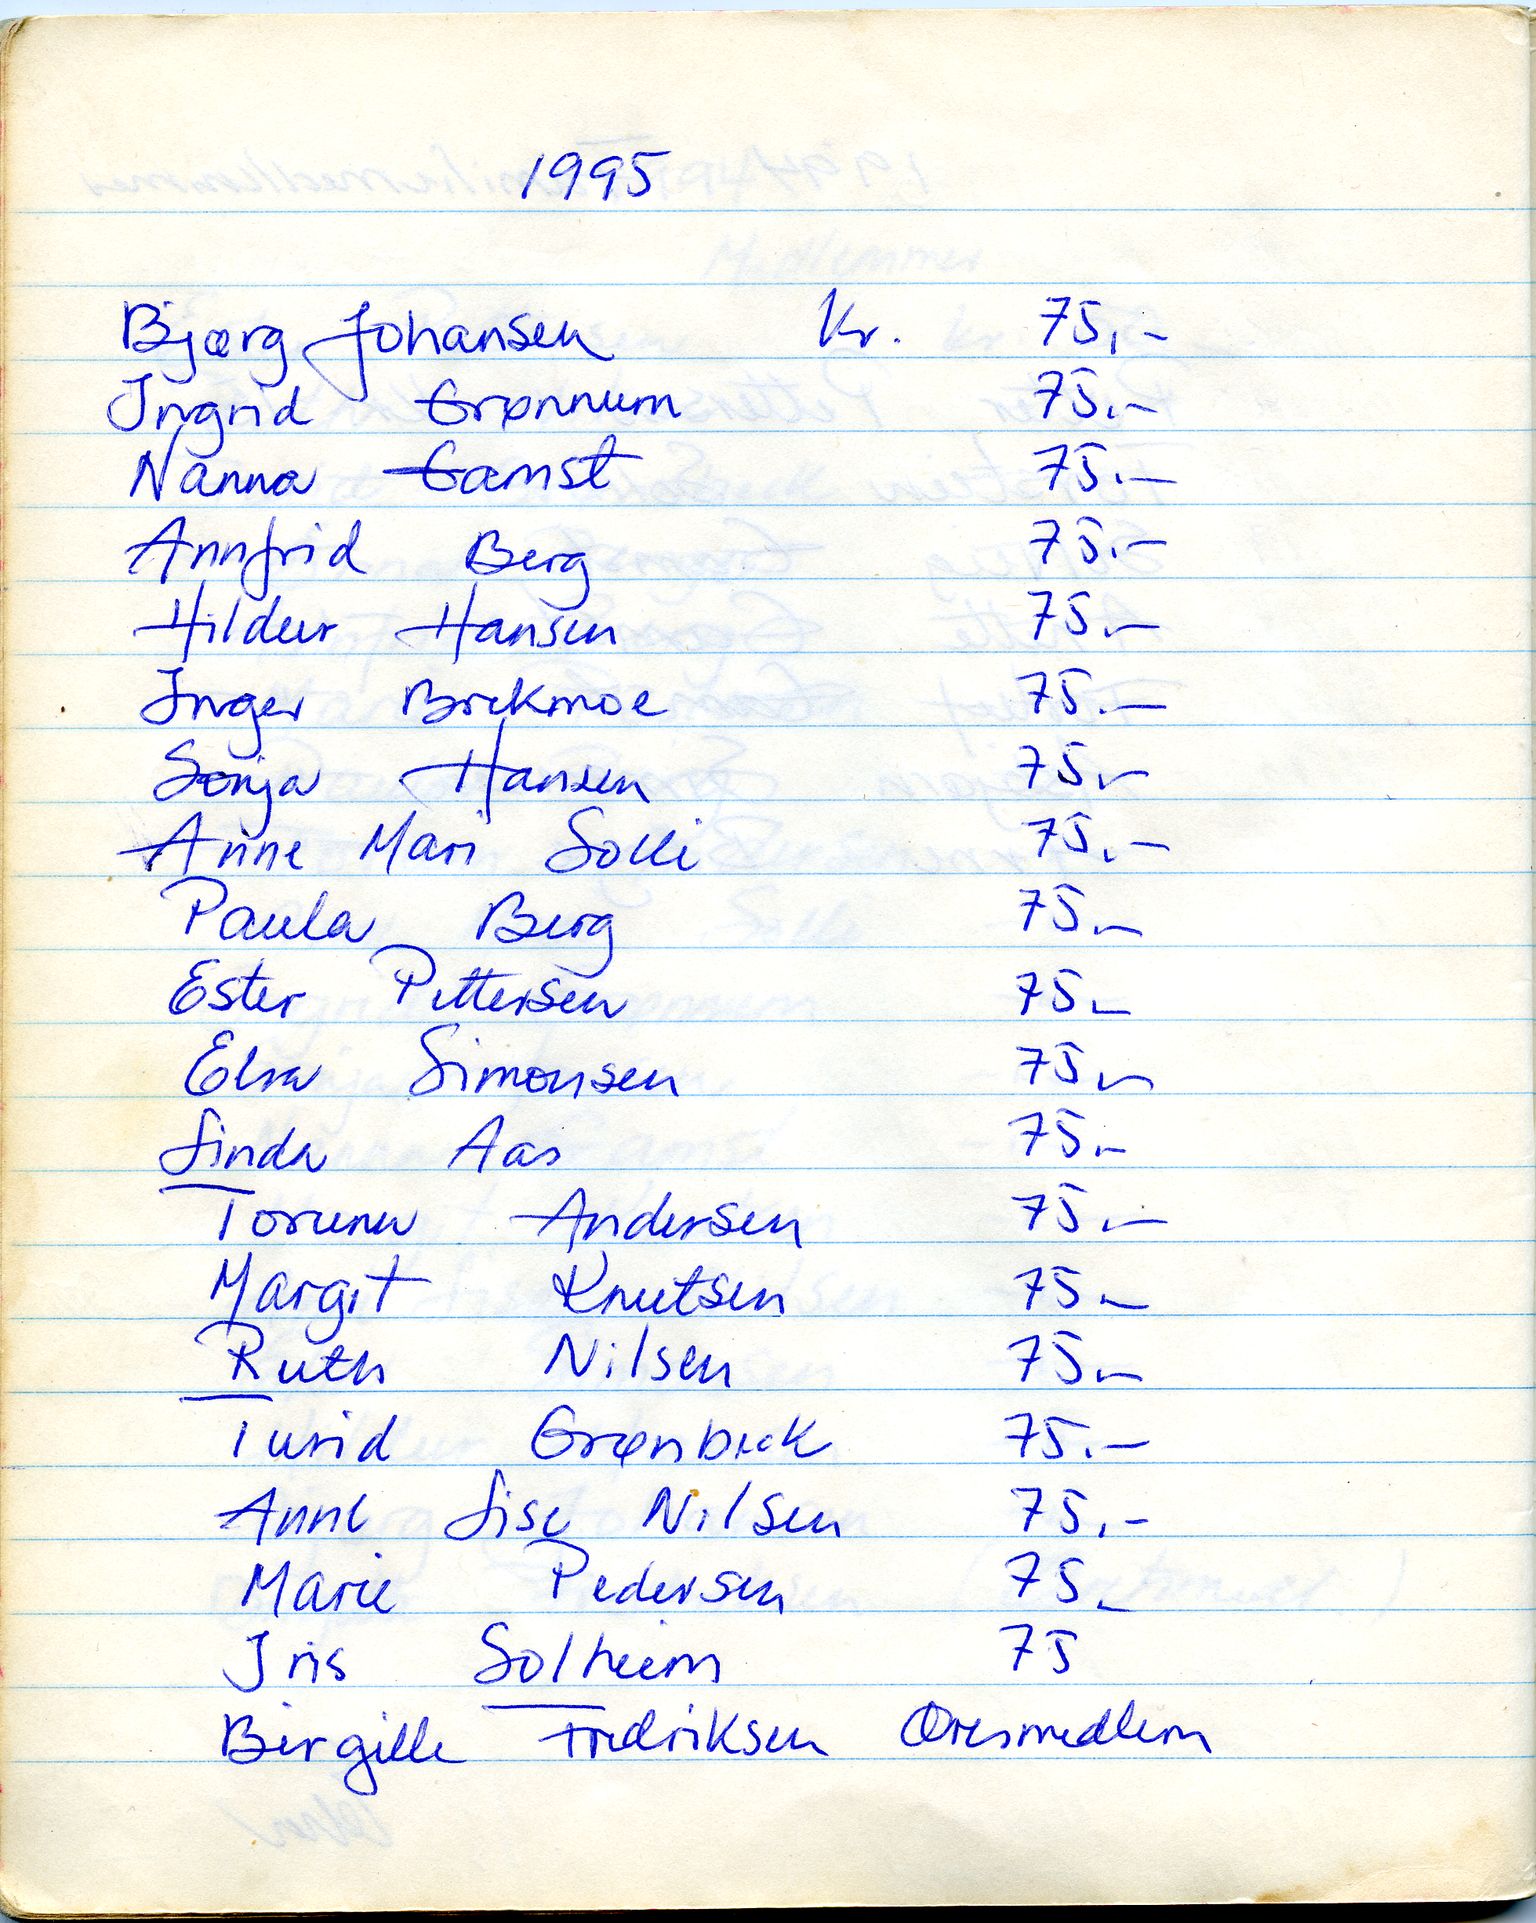 1995
Bjørg Johansen Kr. 75,-
Ingrid Grønnum 75,-
Nanna Gamst 75,-
Annfrid Berg 75,-
Hildur Hansen 75,-
Inger Brekmoe 75,-
Sonja Hansen 75,-
Anne Mari Solli 75,-
Paula Berg 75,-
Ester Pettersen 75,-
Elsa Simonsen 75,-
Linda Aas 75,-
Torunn Andersen 75,-
Margit Knutsen 75,-
Ruth Nilsen 75,-
Turid Grønbeck 75,-
Anne Lise Nilsen 75,-
Marie Pedersen 75,-
Iris Solheim 75
Birgitte Fredriksen Æresmedlem